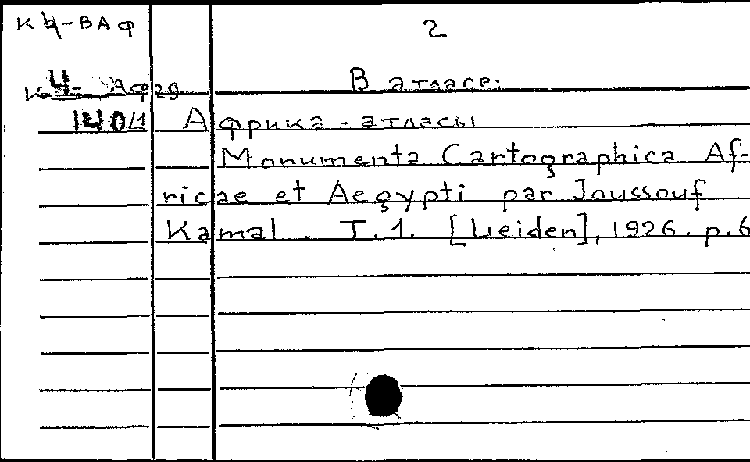 К Ч-ВАф 2
В атласе:
140/1 Африка - атласы
Monumenta Cartographica Af-
ricae et Aegypti par Joussouf
Kamal. T.1. [Leiden], 1926. p.6